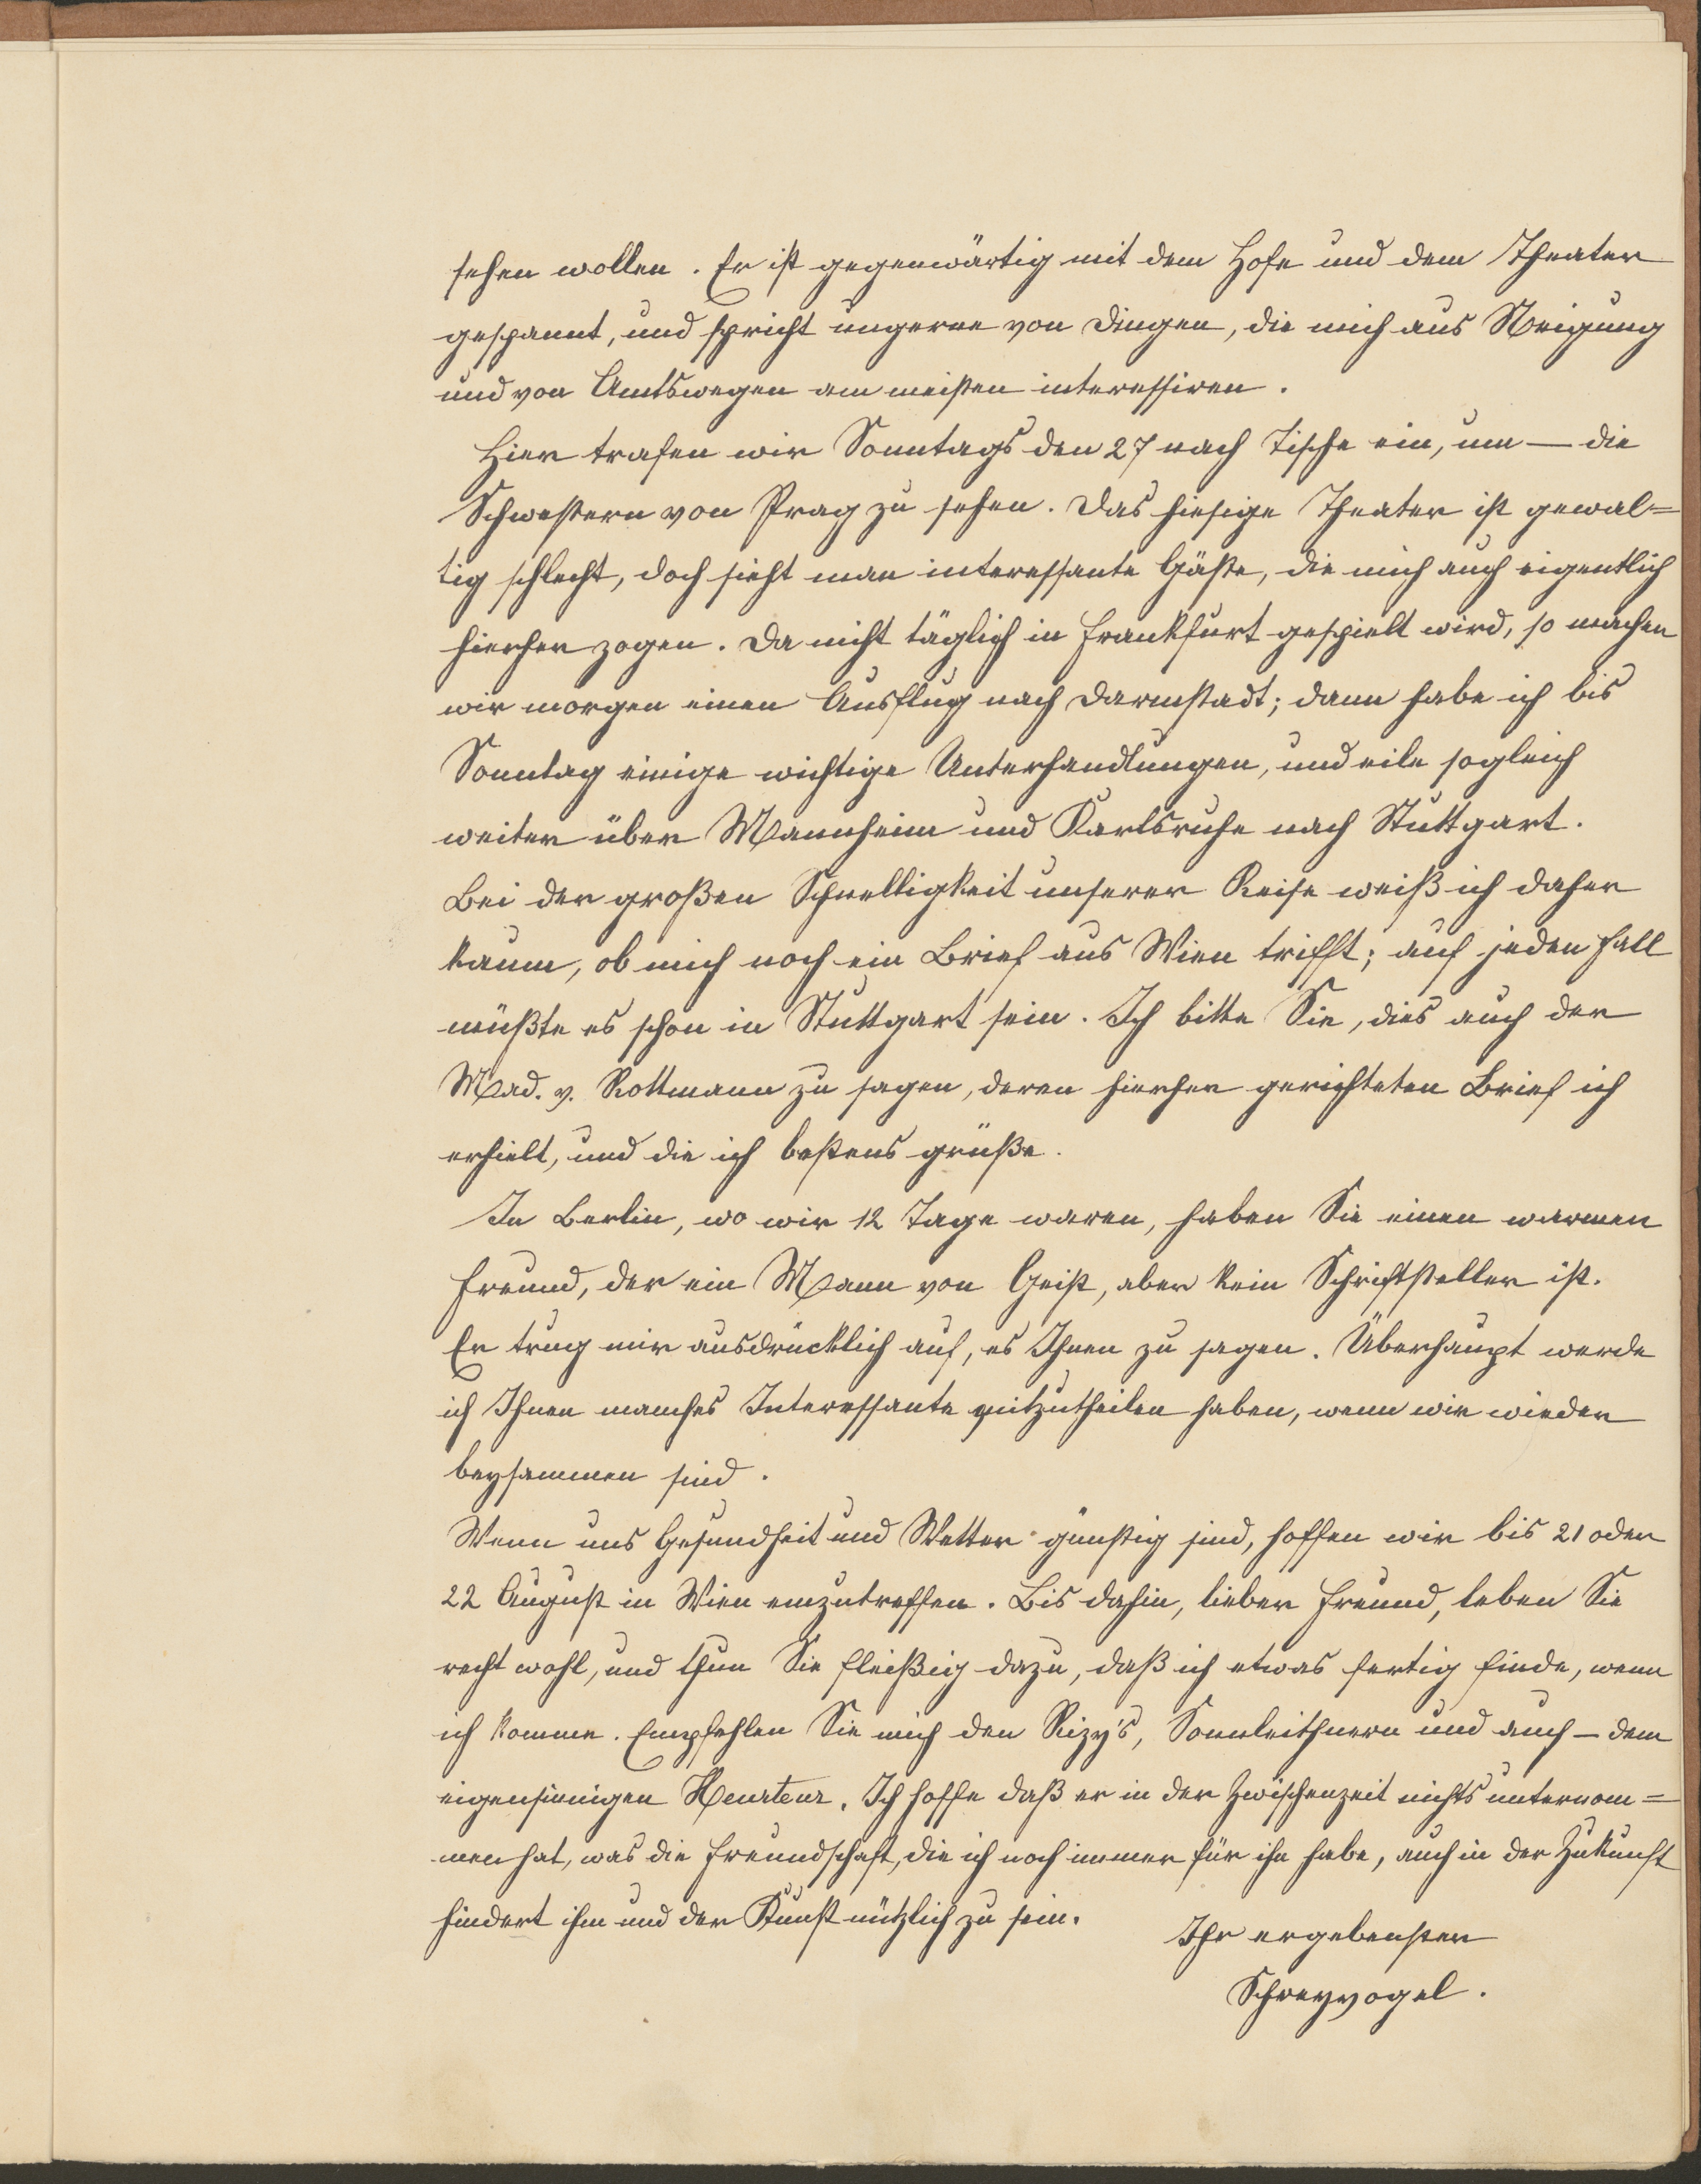 sehen wollen. Er ist gegenwärtig mit dem Hofe und dem Theater
gespannt, und spricht ungerne von Dingen, die mich aus Neigung
und von Amtswegen am meisten interessiren.
Hier trafen wir Sonntags den 27 nach Tische ein, um — die
Schwestern von Prag zu sehen. Das hiesige Theater ist gewal=
tig schlecht, doch sieht man interessante Gäste, die mich auch eigentlich
hierher zogen. Da nicht täglich in Frankfurt gespielt wird, so machen
wir morgen einen Ausflug nach Darmstadt; dann habe ich bis
Sonntag einige wichtige Unterhandlungen, und eile sogleich
weiter über Mannheim und Karlsruhe nach Stuttgart.
Bei der großen Schnelligkeit unserer Reise weiß ich daher
kaum, ob mich noch ein Brief aus Wien trifft; auf jeden Fall
müßte es schon in Stuttgart sein. Ich bitte Sie, dies auch der
Mad. v. Rottmann zu sagen, deren hierher gerichteten Brief ich
erhielt, und die ich bestens grüße.
In Berlin, wo wir 12 Tage waren, haben Sie einen warmen
Freund, der ein Mann von Geist, aber kein Schriftsteller ist.
Er trug mir ausdrücklich auf, es Ihnen zu sagen. Überhaupt werde
ich Ihnen manches Interessante mitzutheilen haben, wenn wir wieder
beysammen sind.
Wenn uns Gesundheit und Wetter günstig sind, hoffen wir bis 21 oder
22 August in Wien einzutreffen. Bis dahin, lieber Freund, leben Sie
recht wohl, und thun Sie fleißig dazu, daß ich etwas fertig finde, wenn
ich komme. Empfehlen Sie mich den Rizy's, Sonnleithnern und auch — dem
eigensinnigen Heurteur. Ich hoffe daß er in der Zwischenzeit nichts unternom=
men hat, was die Freundschaft, die ich noch immer für ihn habe, auch in der Zukunft
hindert ihm und der Kunst nützlich zu sein.
Ihr ergebenster
Schreyvogel.